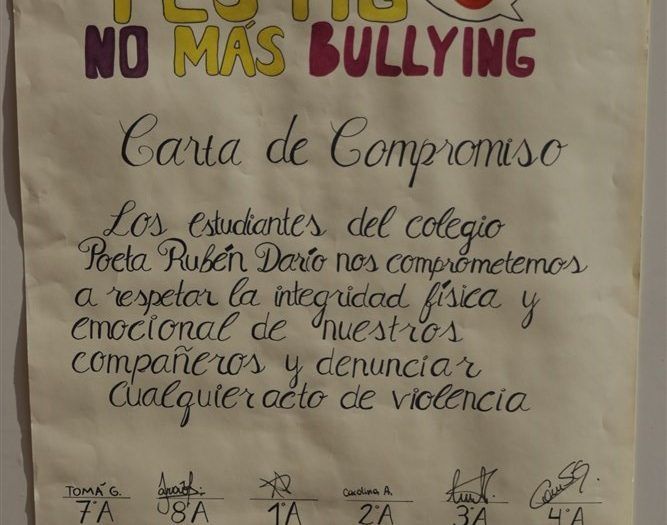 NO MÁS BULLYING
Carta de Compromiso
Los estudiantes del colegio
Poeta Rubén Darío nos comprometemos
a respetar la integridad física y
emocional de nuestros
compañeros y denunciar
cualquier acto de violencia
TOMÁ G. Carolina A.
7°A 8°A 1°A 2°A 3°A 4°A